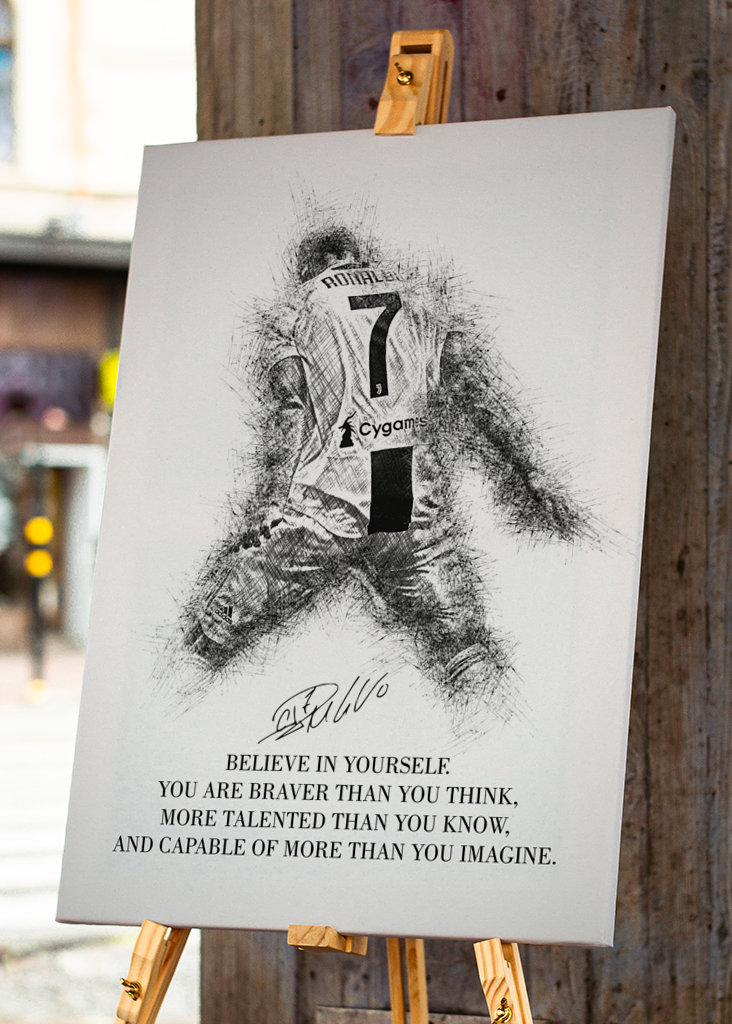 RONALDO
7
Cygames
BELIEVE IN YOURSELF.
YOU ARE BRAVER THAN YOU THINK,
MORE TALENTED THAN YOU KNOW,
AND CAPABLE OF MORE THAN YOU IMAGINE.